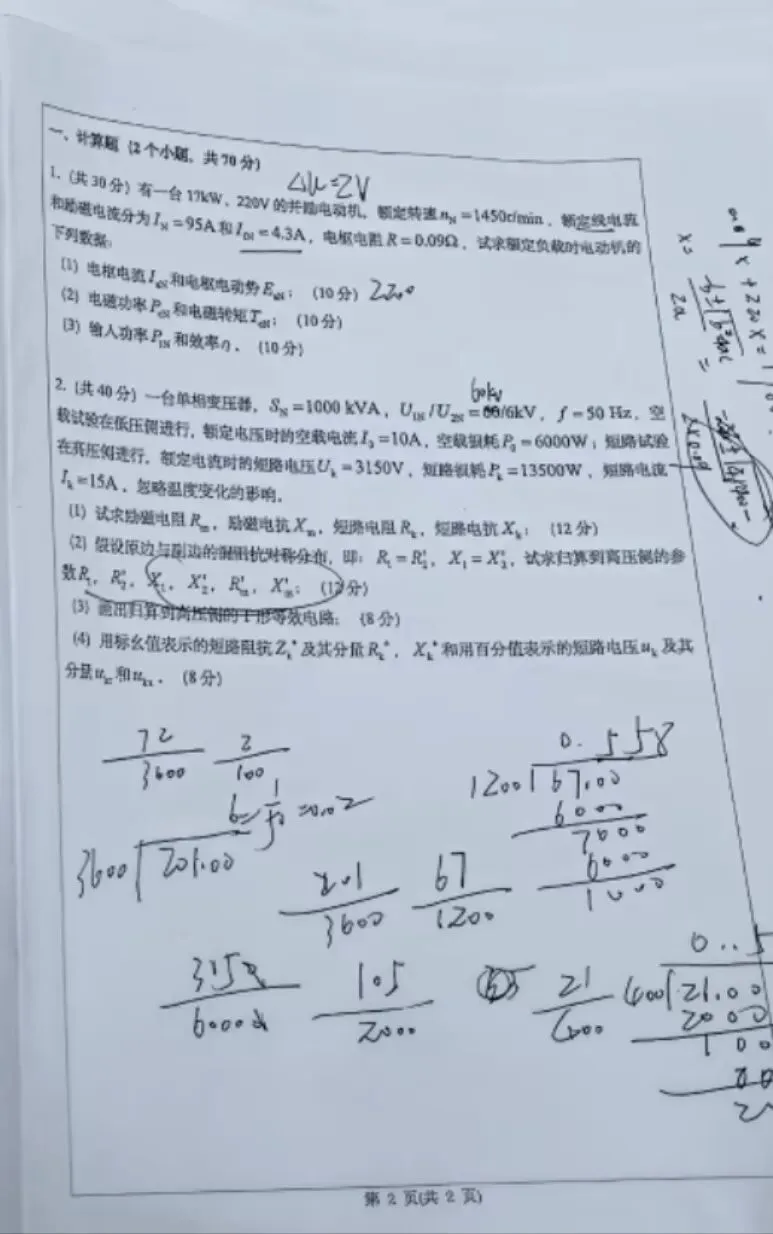 一、计算题（2个小题，共70分）
ΔU=2V
1.（共30分）有一台17kW、220V的并励电动机，额定转速nN=1450r/min，额定线电流
和励磁电流分为IN=95A和IDN=4.3A，电枢电阻R=0.09Ω，试求额定负载时电动机的
下列数据：
（1）电枢电流IaN和电枢电动势EaN；（10分）220
（2）电磁功率PeN和电磁转矩TeN；（10分）
（3）输入功率P1N和效率η．（10分）
60kV
2.（共40分）一台单相变压器，SN=1000 kVA，U1N/U2N=60/6kV，f=50 Hz．空
载试验在低压侧进行，额定电压时的空载电流I0=10A，空载损耗P0=6000W；短路试验
在高压侧进行，额定电流时的短路电压Uk=3150V，短路损耗Pk=13500W，短路电流
Ik=15A，忽略温度变化的影响．
（1）试求励磁电阻Rm，励磁电抗Xm，短路电阻Rk，短路电抗Xk；（12分）
（2）假设原边与副边的漏阻抗对称分布，即：R1=R2'，X1=X2'，试求归算到高压侧的参
数R1，R2'，X1，X2'，Rm'，Xm'；（12分）
（3）画出归算到高压侧的T形等效电路；（8分）
（4）用标幺值表示的短路阻抗Zk*及其分量Rk*，Xk*和用百分值表示的短路电压uk及其
分量ukr和ukx．（8分）
72 2 0.558
3600 100 1200 67.00
6000
=0.02 7000
3600 201.00 6000
201 67 1000
3600 1200
0..5
3150 105 21 400 21.00
60000 2000 2000
100
第 2 页(共 2 页)